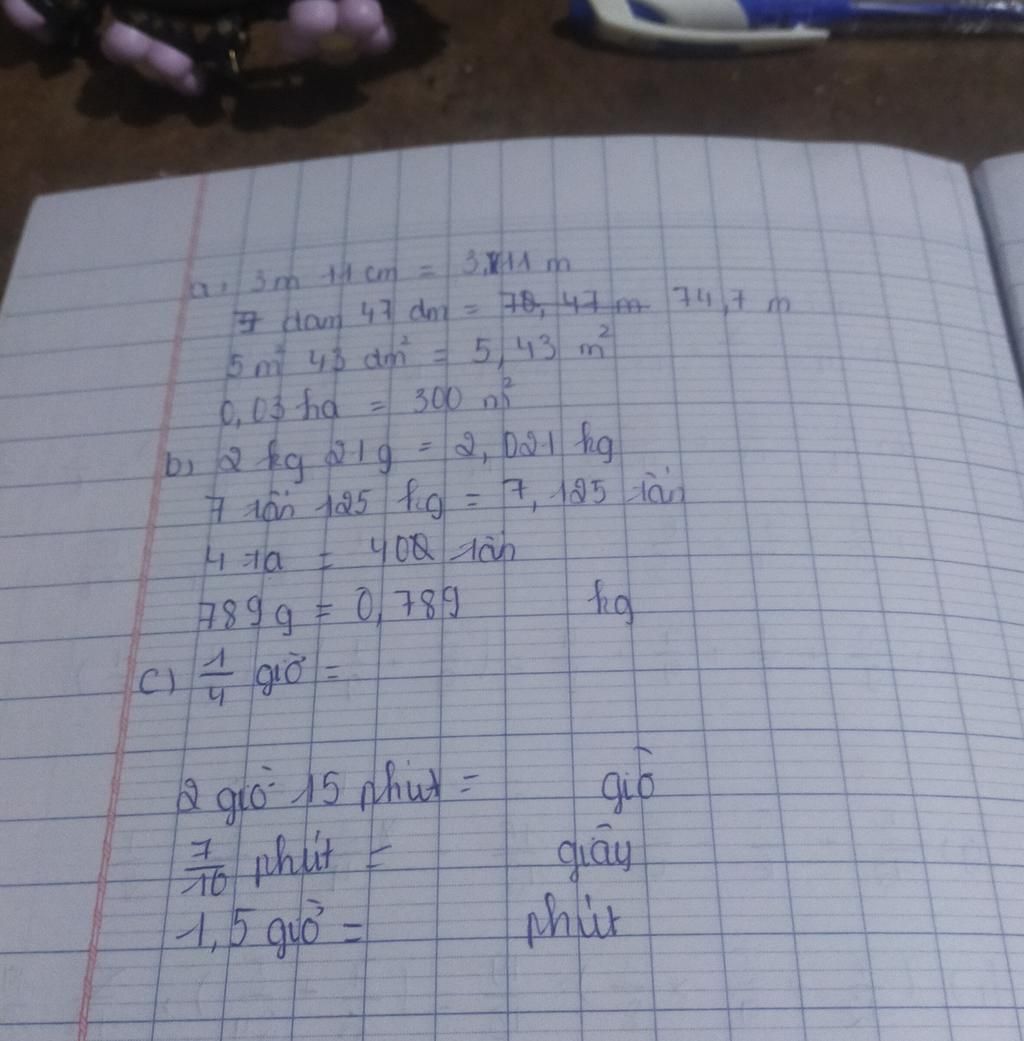 a. 3m 11 cm = 3,11 m
7 dam 47 dm = 70, 47 m 74,7 m
5 m² 43 dm² = 5, 43 m²
0,03 ha = 300 m²
b) 2 kg 21g = 2, 021 kg
7 tấn 125 kg = 7, 125 tấn
4 tạ = tấn
789 g = 0, 789 kg
c) 1/4 giờ =
2 giờ 15 phút = giờ
7/10 phút = giây
1,5 giờ = phút